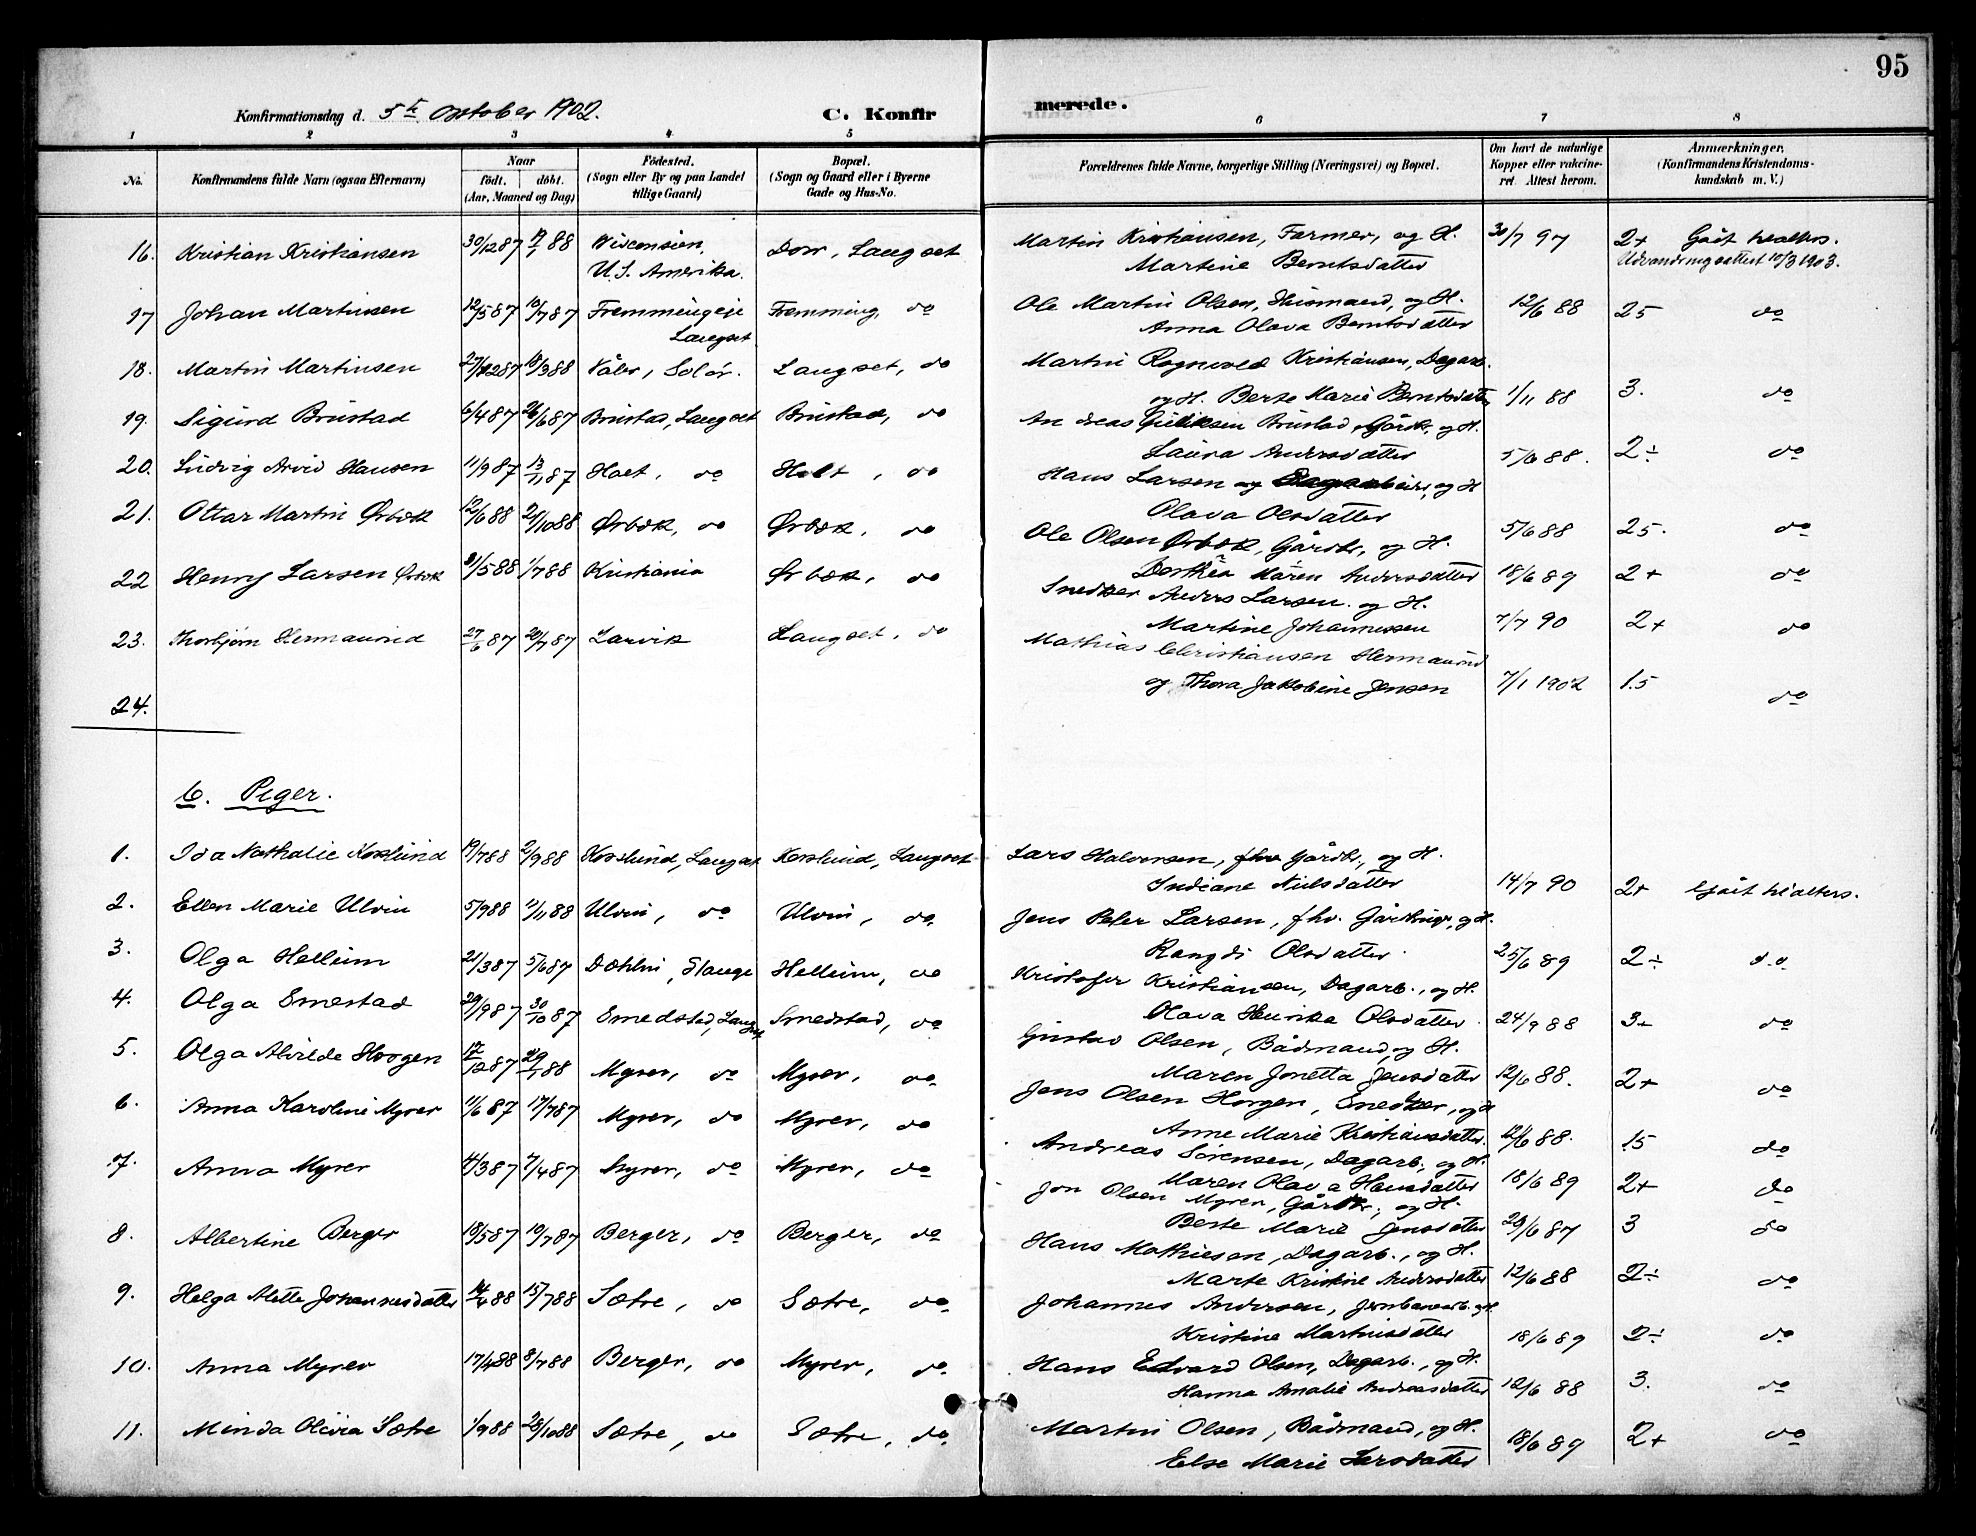 95
Konfirmationsdag d. 5te October 1902.
C. Konfirmerede.
1 2 3 4 5 6 7 8
No.
Konfirmandens fulde Navn (ogsaa Efternavn)
Naar
født. døbt.
(Aar, Maaned og Dag)
Fødested.
(Sogn eller By og paa Landet tillige Gaard)
Bopæl.
(Sogn og Gaard eller i Byerne Gade og Hus-No.
Forældrenes fulde Navne, borgerlige Stilling (Næringsvei) og Bopæl.
Om havt de naturlige Kopper eller vakcineret. Attest herom.
Anmærkninger.
(Konfirmandens Kristendomskundskab m. V.)
16. Kristian Kristiansen 30/12 87 88 Wisconsien, U.S. Amerika. Dorr, Langset Martin Kristiansen, Farmer, og H. 30/7 97 2+ Gaat til alters.
Martine Berntsdatter Udvandringsattest 10/3 1903.
17 Johan Martinsen 12/5 87 10/7 87 Fremmingeje Langset Fremming, do Ole Martin Olsen, Husmand, og H. 12/6 88 25 do
Anna Olava Berntsdatter
18. Martin Martinsen 27/12 87 18/3 88 Våler, Solør. Langset, do Martin Rognvald Kristiansen, Dagarb.
og H. Berte Marie Berntsdatter 1/11 88 3. do
19. Sigurd Brustad 6/4 87 26/6 87 Brustad, Langset Brustad, do Andreas Brustad, Gårdb., og H.
Laura Andersdatter 5/6 88. 2÷ do
20. Ludvig Arvid Hansen 11/9 87 13/11 87 Holt, do Holt, do Hans Larsen og H
Olava Olsdatter 5/6 88 25. do
21. Ottar Martin Ørbæk 12/6 88 21/10 88 Ørbæk, do Ørbæk, do Ole Olsen Ørbæk, Gårdb., og H.
Dorthea Maren Andersdatter 18/6 89 2+ do
22 Henry Larsen Ørbæk 31/5 88 1/7 88 Kristiania Ørbæk, do Snedker Anders Larsen. og H.
Martine Johannessen 7/7 90 2+ do
23. Thorbjørn Hermanrud 27/6 87 20/7 87 Larvik Langset, do Mathias Christiansen Hermanrud
og Thora Jakobine Jensen 7/1 1902 1.5 do
24.
b. Piger.
1. Ida Nathalie Korslund 19/7 88 2/9 88 Korslund, Langset Korslund, Langset Lars Halvorsen, fhv Gårdb., og H.
Indiane Nielsdatter 14/7 90 2+ Gaat til alters.
2. Ellen Marie Ulvin 5/9 88 11/11 88 Ulvin, do Ulvin, do Jens Peter Larsen, fhv. og H.
Rangdi Olsdatter. 25/6 89 2÷ d.o.
3. Olga Helleim 21/3 87 5/6 87 Dæhlin, Stange Helleim, do Kristofer Kristiansen, Dagarb., og H.
Olava Henrika Olsdatter. 24/9 88 3+ do
4. Olga Smestad 29/9 87 30/10 87 Smedstad, Langset Smedstad, do Gustav Olsen, Bådmand, og H.
Maren Jonetta Jensdatter 12/6 88. 2+ do
5. Olga Alvilde Horgen 17/12 87 29/1 88 Myrer, do Myrer, do Jens Olsen Horgen, Snedker, og H
Anne Marie Kristiansdatter. 12/6 88. 15 do
6. Anna Karoline Myrer 11/6 87 17/7 87 Myrer, do Myrer, do Andreas Sørensen, Dagarb., og H.
Maren Olava Hansdatter 18/6 89 2+ do
7. Anna Myrer 4/3 87 7/4 87 Myrer, do Myrer, do Jon Olsen Myrer, Gårdbr., og H.
Berte Marie Jensdatter 29/6 87 3 do
8. Albertine Berger 18/5 87 10/7 87 Berger, do Berger, do Hans Mathiesen, Dagarb., og H.
Marte Kristine Andersdatter 12/6 88 2÷ do
9. Helga Alette Johannesdatter 14/4 88 15/7 88 Sætre, do Sætre, do. Johannes Andersen, Jernbanearb. og H.
Kristine Martinsdatter 18/6 89 2÷ do
10. Anna Myrer 17/4 88 8/7 88 Berger, do Myrer, do. Hans Edvard Olsen, Dagarb., og H.
Hanna Amalie Andreasdatter 12/6 88 3. do
11. Minda Olivia Sætre 1/9 88 28/10 88 Sætre, do Sætre, do. Martin Olsen, Bådmand, og H.
Else Marie Larsdatter 18/6 89 2+ do